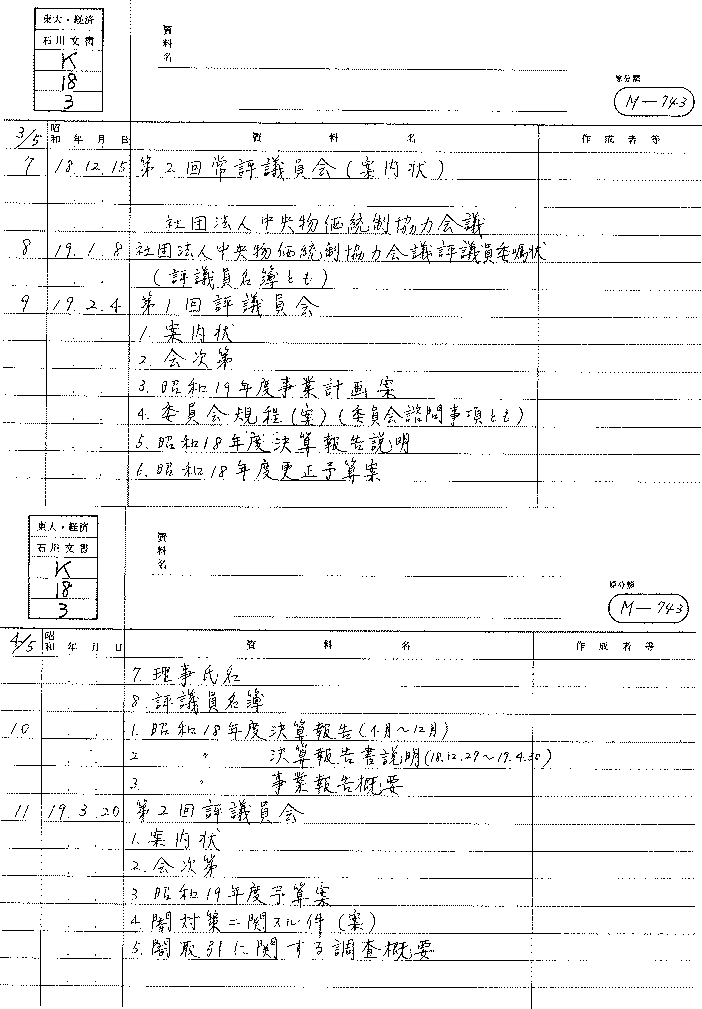 東大・経済
石川文書
K
18
3
資料名
原分類
M-743
3/5 昭和 年 月 日 資料名 作成者等
7 18.12.15 第2回常評議員会(案内状)
社団法人中央物価統制協力会議
8 19.1.8 社団法人中央物価統制協力会議評議員委嘱状
(評議員名簿とも)
9 19.2.4 第1回評議員会
1. 案内状
2. 会次第
3. 昭和19年度事業計画案
4. 委員会規程(案)(委員会諮問事項とも)
5. 昭和18年度決算報告説明
6. 昭和18年度更正予算案
東大・経済
石川文書
K
18
3
資料名
原分類
M-743
4/5 昭和 年 月 日 資料名 作成者等
7. 理事氏名
8 評議員名簿
10 1. 昭和18年度決算報告(4月~12月)
2 〃 決算報告書説明(18.12.29~19.4.30)
3. 〃 事業報告概要
11 19.3.20 第2回評議員会
1. 案内状
2. 会次第
3 昭和19年度予算案
4. 闇対策ニ関スル件(案)
5. 闇取引に関する調査概要